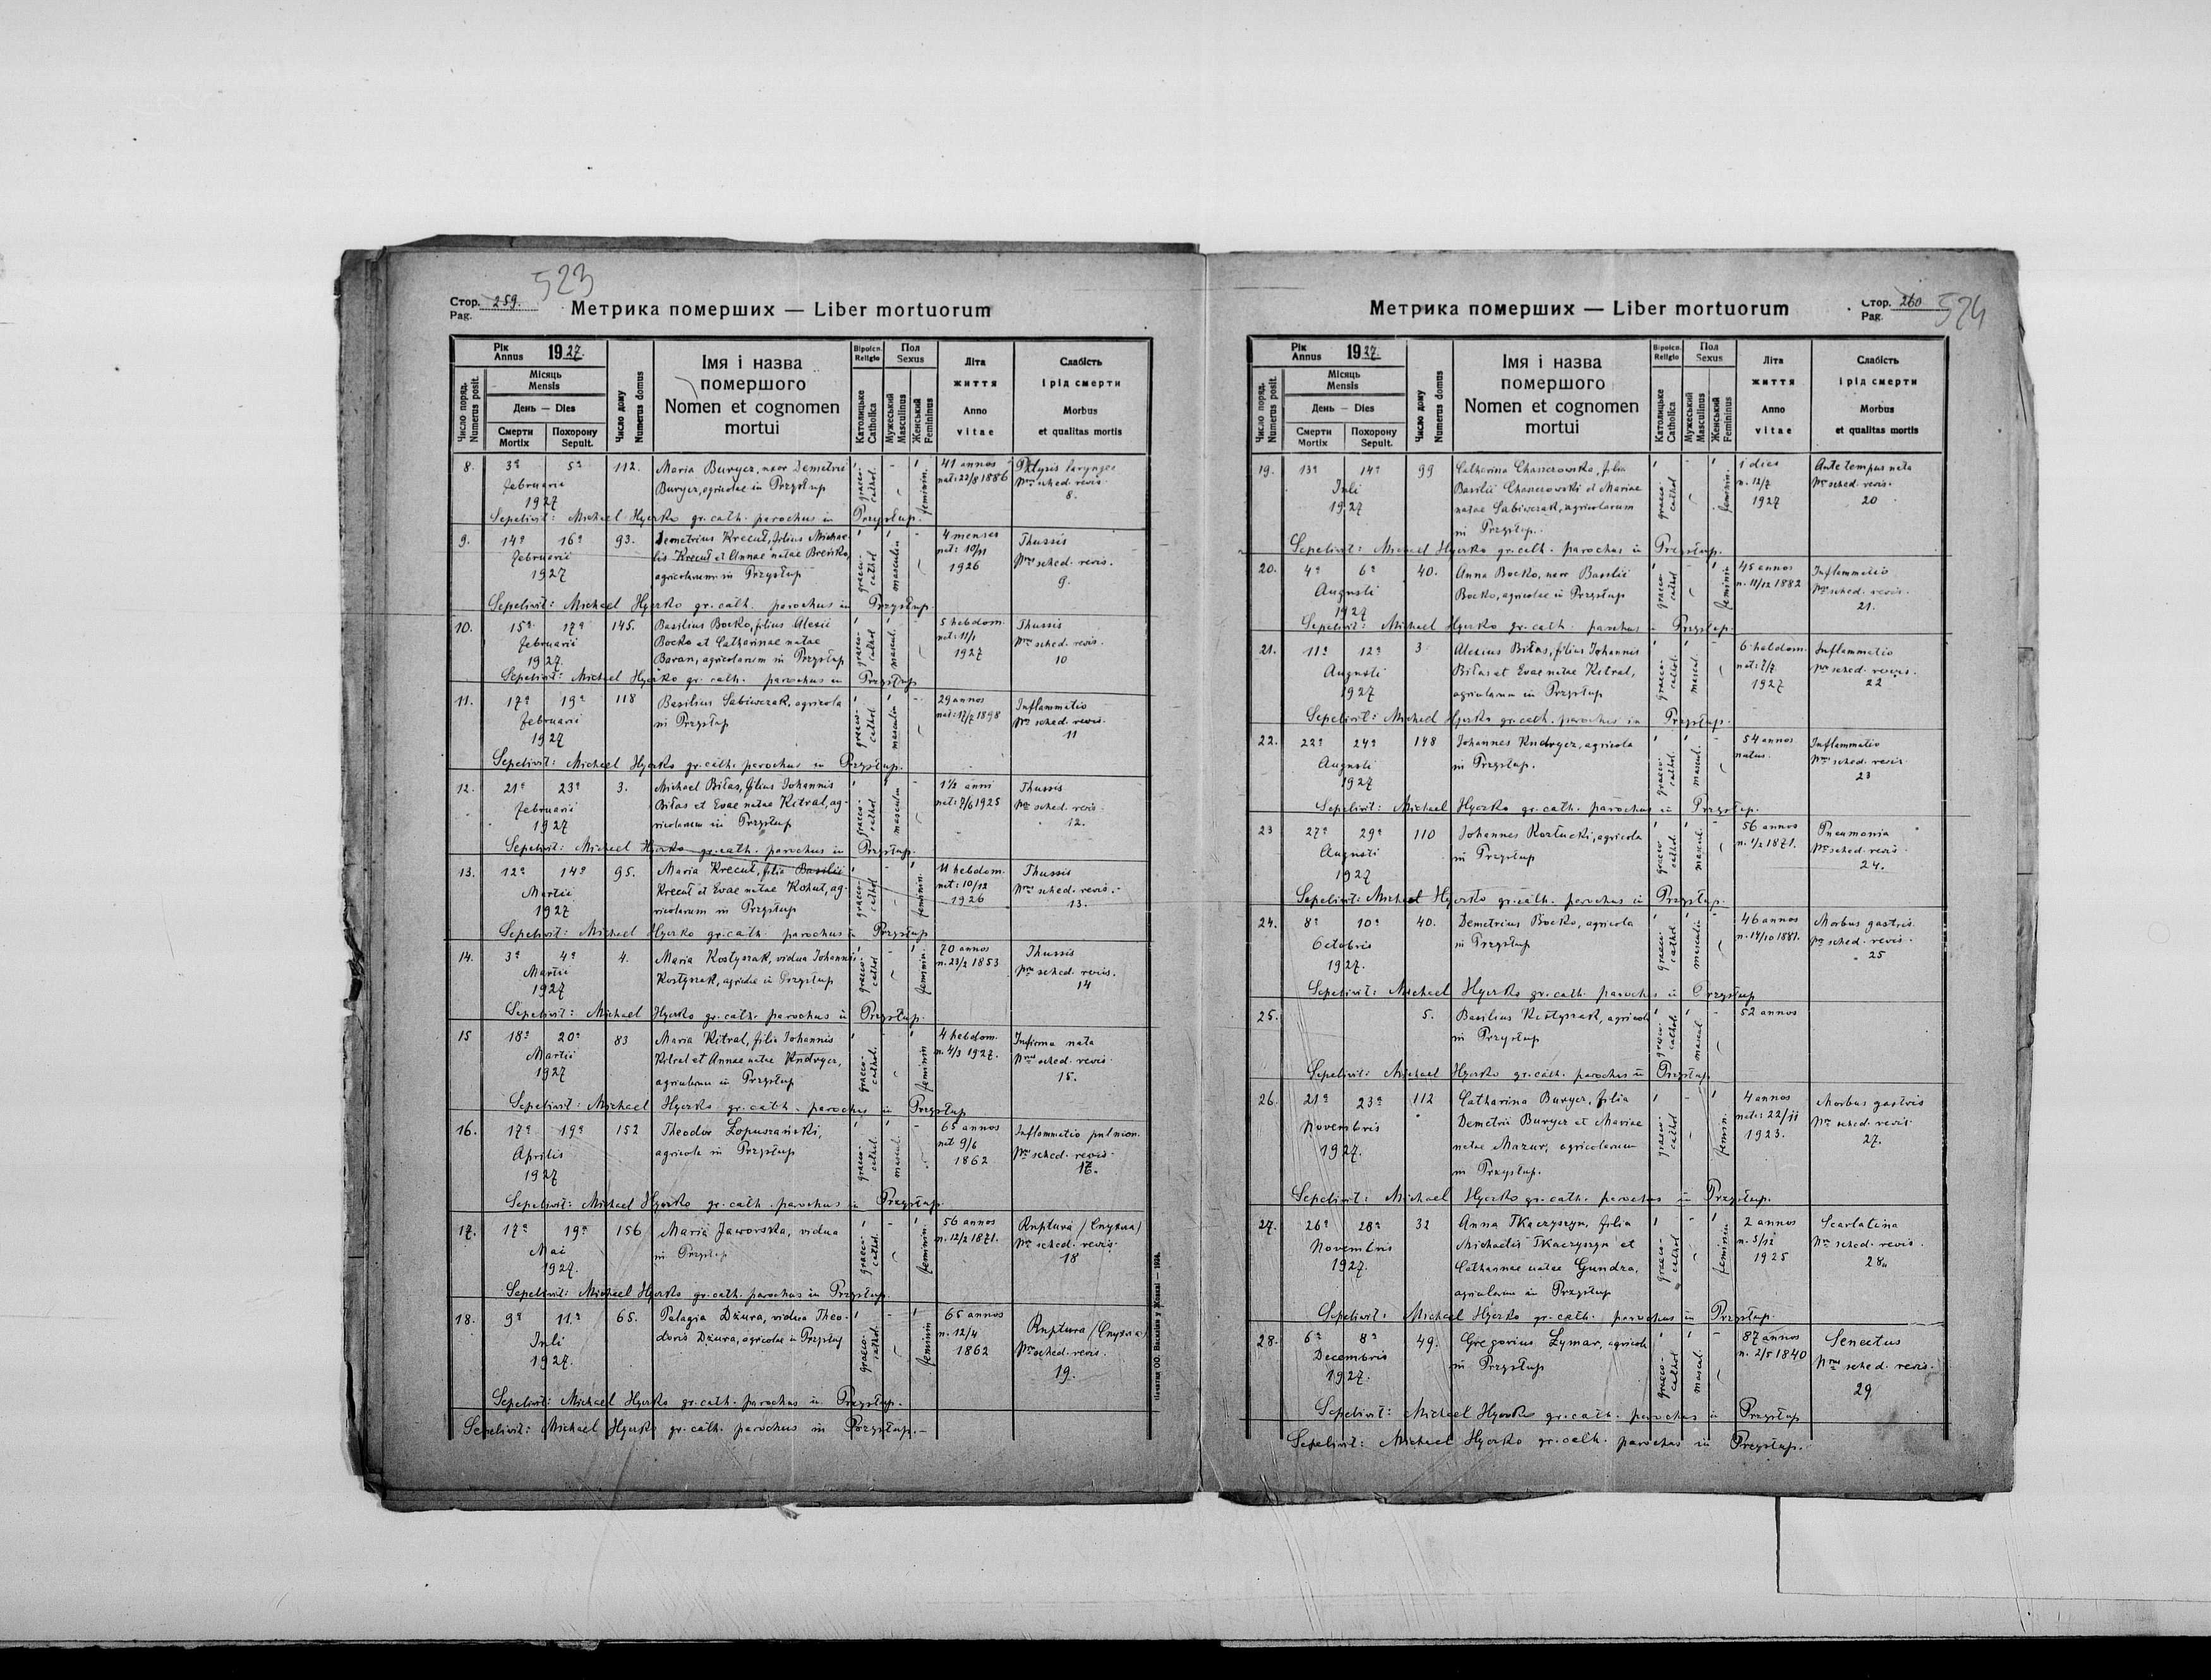 523
Стор. 259.
Pag.
Метрика померших — Liber mortuorum
Рік
Annus 1927.
Місяць
Mensis
День — Dies
Смерти
Mortix
Похорону
Sepult.
Число поряд.
Numerus posit.
Число дому
Numerus domus
Імя і назва
помершого
Nomen et cognomen
mortui
Віроісп.
Religio
Католицьке
Catholica
Пол
Sexus
Мужеський
Masculinus
Женський
Femininus
Літа
життя
Anno
vitae
Слабість
і рід смерти
Morbus
et qualitas mortis
8. 3ª 5ª 112. Maria Buryez, uxor Demetrii graeco-cathol. feminin. 41 annos
Februarii Buryez, agricolae in Przysłup nat: 22/8 1886 Nrus sched. revis.
1927 8.
Sepelivit: Michael Hyerko gr. cath. parochus in Przysłup.
9. 14ª 16ª 93. Demetrius Krecuł, filius Michae- graeco-cathol masculin 4 menses Thussis
Februarii lis Krecuł et Annae natae Breńko, nat: 10/11 Nrus sched. revis.
1927 agricolarum in Przysłup 1926 9.
Sepelivit: Michael Hyerko gr. cath. parochus in Przysłup.
10. 15ª 17ª 145. Basilius Boćko, filius Alexii graeco-cathol mascul. 5 hebdom. Thussis
Februarii Boćko et Catharinae natae nat: 11/1 Nrus sched. revis.
1927. Baran, agricolarum in Przysłup 1927 10
Sepelivit: Michael Hyerko gr. cath. parochus in Przysłup
11. 17ª 19ª 118 Basilius Sabiwczak, agricola graeco-cathol masculin 29 annos Inflammatio
Februarii in Przysłup nat: 17/7 1898 Nrus sched. revis.
1927 11
Sepelivit: Michael Hyerko gr. cath. parochus in Przysłup.
12. 21ª 23ª 3. Michael Biłas, filius Johannis graeco-cathol masculin 1½ anni Thussis
Februarii Biłas et Evae natae Kitral, ag- nat: 7/6 1925 Nrus sched. revis.
1927 ricolarum in Przysłup 12.
Sepelivit: Michael Hyerko gr. cath. parochus in Przysłup.
13. 12ª 14ª 95. Maria Krecuł, filia Basilii graeco-cathol feminin. 11 hebdom. Thussis
Martii Krecuł et Evae natae Kohut, ag- nat: 10/12 Nrus sched. revis.
1927 ricolarum in Przysłup 1926 13.
Sepelivit: Michael Hyerko gr. cath. parochus in Przysłup
14. 3ª 4ª 4. Maria Kostyszak, vidua Johannis graeco-cathol feminin. 70 annos Thussis
Martii Kostyszak, agricolae in Przysłup n. 23/2 1853 Nrus sched. revis.
1927 14
Sepelivit: Michael Hyerko gr. cath. parochus in Przysłup.
15 18ª 20ª 83 Maria Kitral, filia Johannis graeco-cathol. feminin 4 hebdom. Infirma nata
Martii Kitral et Annae natae Kndryez, n. 4/3 1927. Nrus sched. revis.
1927 agricolarum in Przysłup 15.
Sepelivit: Michael Hyerko gr. cath. parochus in Przysłup
16. 17ª 19ª 152 Theodor Łopuszański, graeco-cathol. mascul. 65 annos Inflammatio pulmon.
Aprilis agricola in Przysłup nat 9/6 Nrus sched. revis.
1927 1862 17.
Sepelivit: Michael Hyerko gr. cath. parochus in Przysłup.
17. 17ª 19ª 156 Maria Jaworska, vidua graeco-cathol. feminin. 56 annos Ruptura (Спухла)
Mai in Przysłup n. 12/2 1871. Nrus sched. revis.
1927. 18
Sepelivit: Michael Hyerko gr. cath. parochus in Przysłup.
18. 9ª 11ª 65. Pelagia Dżura, vidua Theo- graeco-cathol. feminin 65 annos Ruptura (Спухла)
Juli doris Dżura, agricolae in Przysłup n. 12/4 Nrus sched. revis.
1927. 1862 19.
Sepelivit: Michael Hyerko gr. cath. parochus in Przysłup.
Sepelivit: Michael Hyerko gr. cath. parochus in Przysłup.-
Печатня ОО. Василіян у Жовкві — 192
Метрика померших — Liber mortuorum
Стор. 260
Pag.
524
Рік
Annus 1927.
Місяць
Mensis
День — Dies
Смерти
Mortix
Похорону
Sepult.
Число поряд.
Numerus posit.
Число дому
Numerus domus
Імя і назва
помершого
Nomen et cognomen
mortui
Віроісп.
Religio
Католицьке
Catholica
Пол
Sexus
Мужеський
Masculinus
Женський
Femininus
Літа
життя
Anno
vitae
Слабість
і рід смерти
Morbus
et qualitas mortis
19. 13ª 14ª 99 Catharina Chaszczowska, filia graeco-cathol feminin. 1 dies Ante tempus nata
Juli Basilii Chaszczowski et Mariae n. 12/7 Nrus sched. revis.
1927 natae Sabiwczak, agricolarum 1927 20
in Przysłup.
Sepelivit: Michael Hyerko gr. cath. parochus in Przysłup.
20. 4ª 6ª 40. Anna Boćko, uxor Basilii graeco-cathol feminin 45 annos Inflammatio
Augusti Boćko, agricolae in Przysłup n. 11/12 1882 Nrus sched. revis.
1927 21.
Sepelivit: Michael Hyerko gr. cath. parochus in Przysłup.
21. 11ª 12ª 3 Alexius Biłas, filius Johannis graeco-cathol. mascul. 6 hebdom. Inflammatio
Augusti Biłas et Evae natae Kitral, nat: 7/7 Nrus sched. revis.
1927 agricolarum in Przysłup 1927 22
Sepelivit: Michael Hyerko gr. cath. parochus in Przysłup.
22. 22ª 24ª 148 Johannes Kndryez, agricola graeco-cathol. mascul. 54 annos Inflammatio
Augusti in Przysłup. natus. Nrus sched. revis
1927 23
Sepelivit: Michael Hyerko gr. cath. parochus in Przysłup.
23 27ª 29ª 110 Johannes Korłucki, agricola graeco-cathol mascul. 56 annos Pneumonia
Augusti in Przysłup n. 1/2 1871. Nrus sched. revis
1927 24.
Sepelivit: Michael Hyerko gr. cath. parochus in Przysłup.
24. 8ª 10ª 40. Demetrius Boćko, agricola graeco-cathol masculin 46 annos Morbus gastris
Octobris in Przysłup n. 14/10 1881. Nrus sched. revis.
1927. 25
Sepelivit: Michael Hyerko gr. cath. parochus in Przysłup
25. 5. Basilius Kostyszak, agricola graeco-cathol. mascul. 52 annos
in Przysłup
Sepelivit: Michael Hyerko gr. cath. parochus in Przysłup.
26. 21ª 23ª 112 Catharina Buryez, filia graeco-cathol femin. 4 annos Morbus gastris
Novembris Demetrii Buryez et Mariae nat: 22/11 Nrus sched. revis.
1927. natae Mazur, agricolarum 1923. 27.
in Przysłup.
Sepelivit: Michael Hyerko gr. cath. parochus in Przysłup.
27. 26ª 28ª 32 Anna Tkaczyszyn, filia graeco-cathol feminin 2 annos Scarlatina
Novembris Michaelis Tkaczyszyn et n. 3/12 Nrus sched. revis.
1927. Catharinae natae Gundra, 1925 28.
agricolarum in Przysłup
Sepelivit: Michael Hyerko gr. cath. parochus in Przysłup.
28. 6ª 8ª 49. Gregorius Łymar, agricola graeco-cathol mascul. 87 annos Senectus
Decembris in Przysłup n. 2/5 1840 Nrus sched. revis.
1927. 29
Sepelivit: Michael Hyerko gr. cath. parochus in Przysłup
Sepelivit: Michael Hyerko gr. cath. parochus in Przysłup.